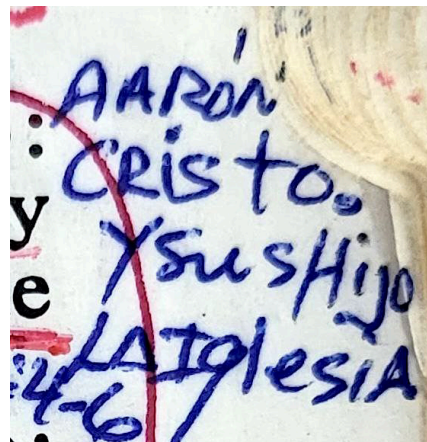 AARÓN
CRISTO.
y
Y SUS HIJO
e
LA IGLESIA
4-6